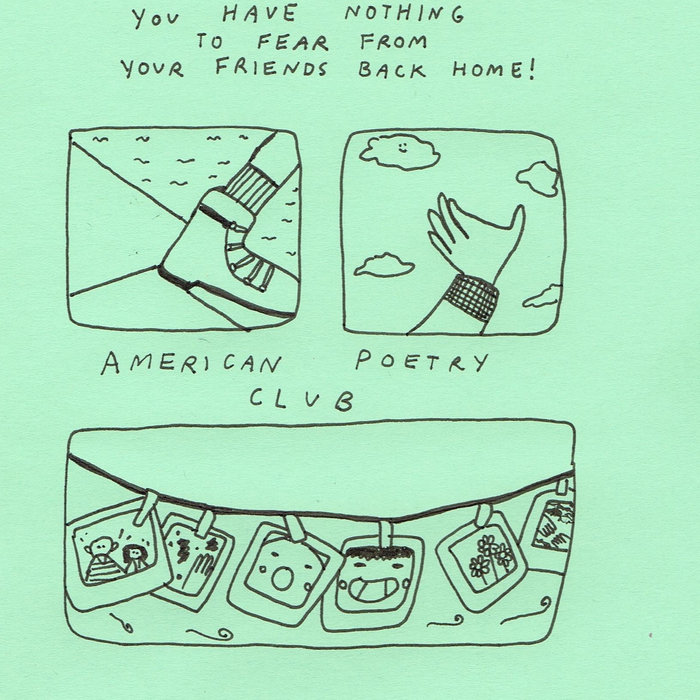 YOU HAVE NOTHING
TO FEAR FROM
YOUR FRIENDS BACK HOME!
AMERICAN POETRY
CLUB